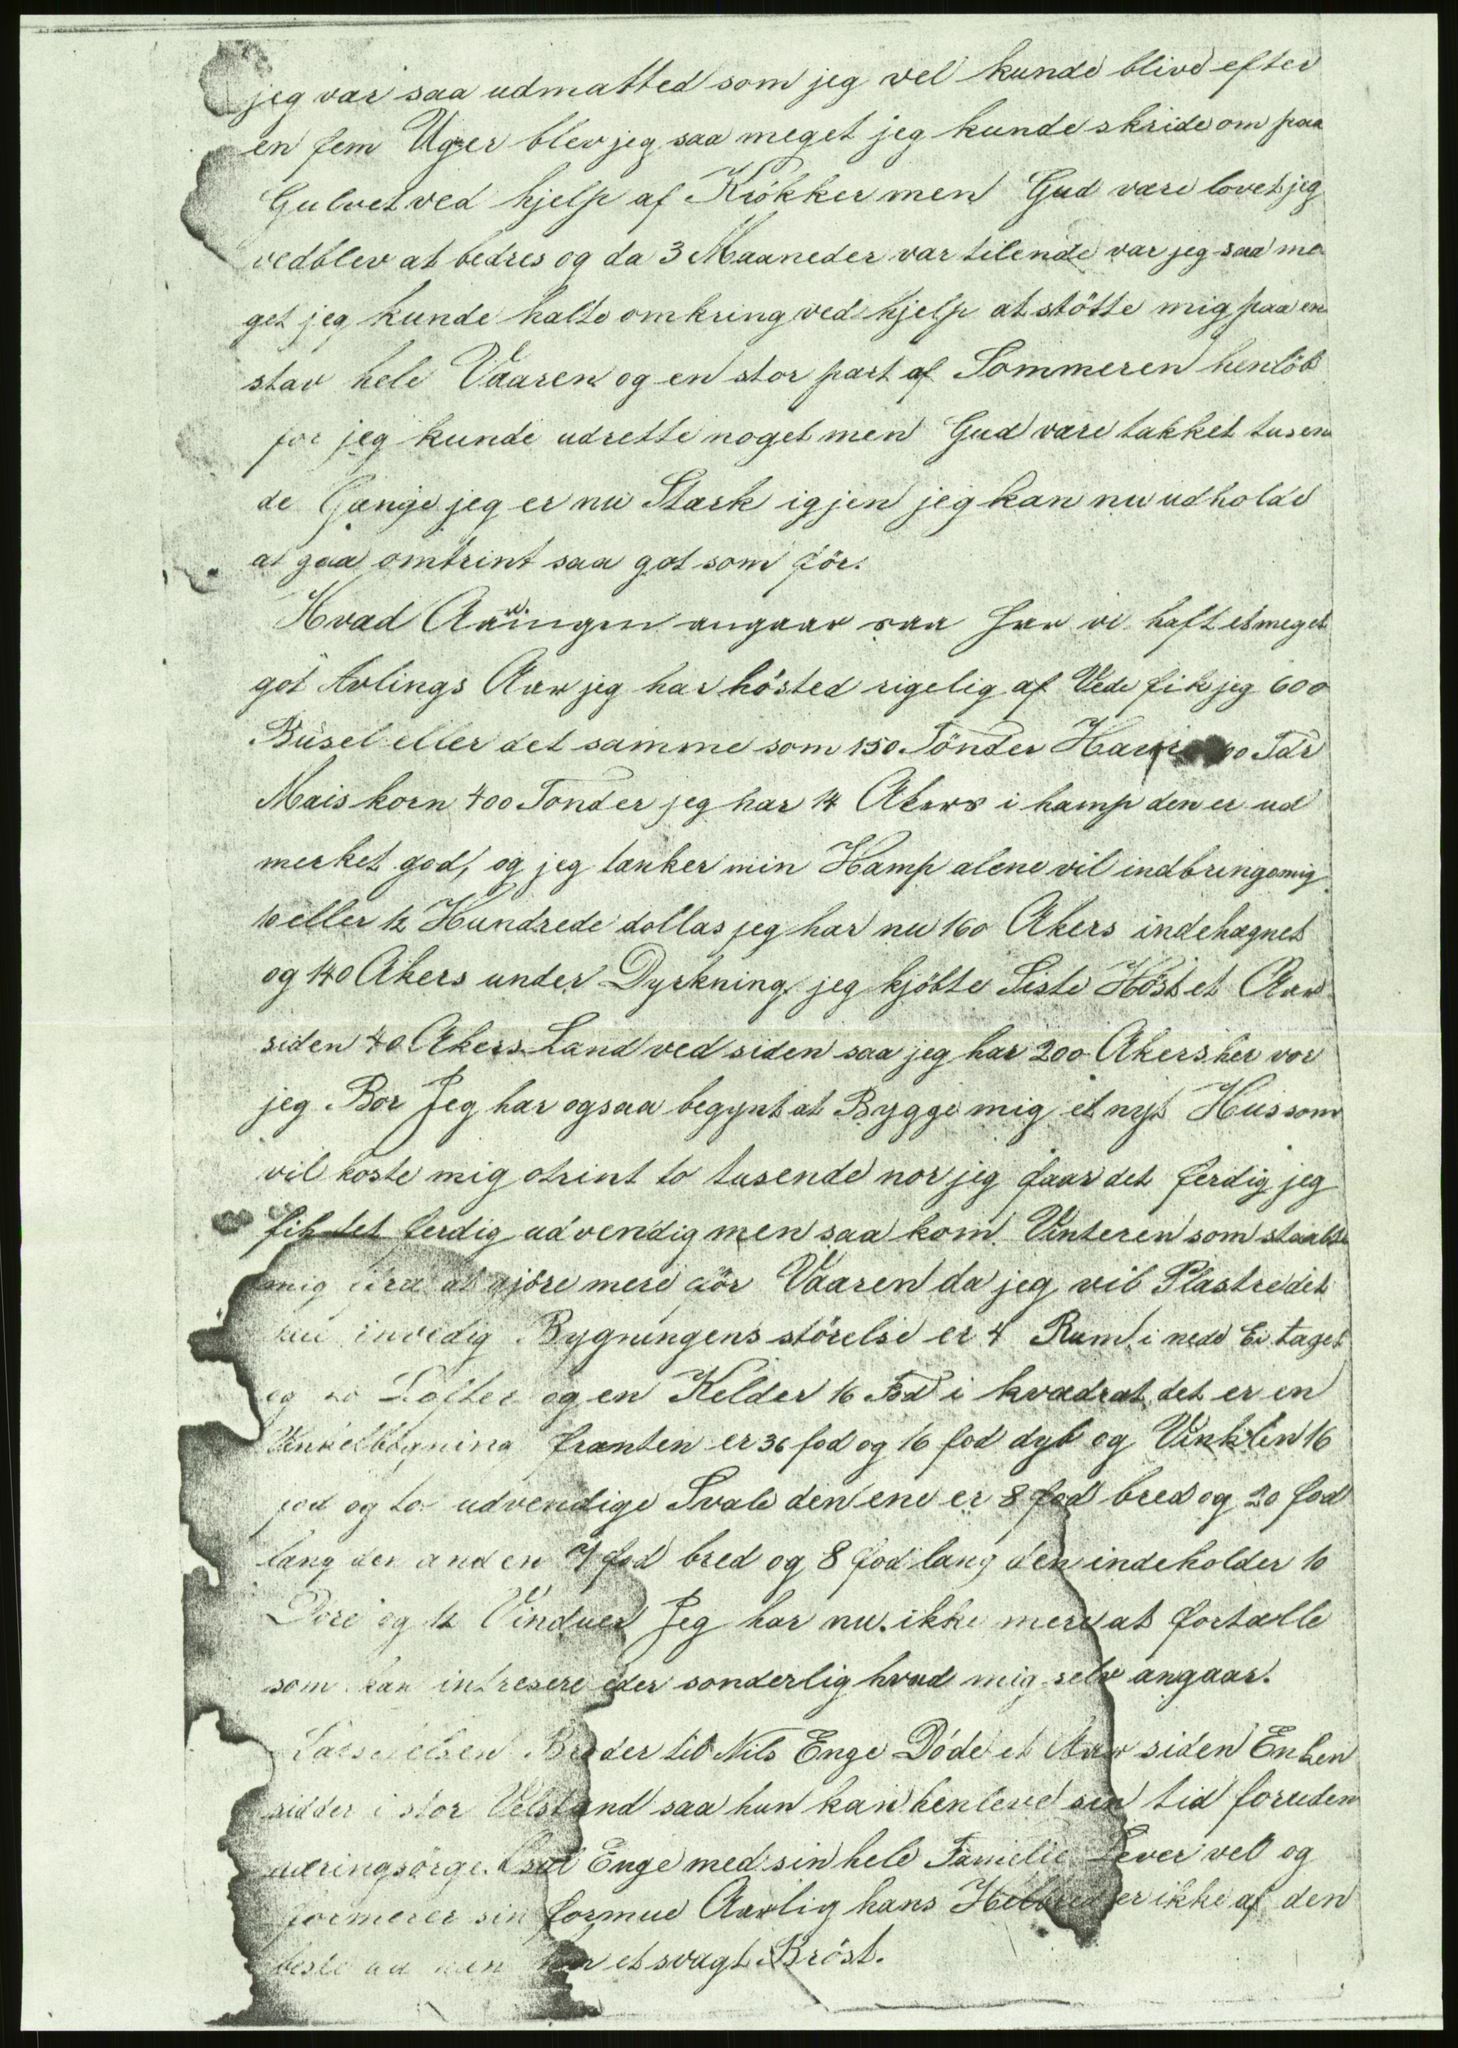 jeg var saa udmatted som jeg vel kunde blive efter
en fem Uger blev jeg saa meget jeg kunde skride om paa
Gulvet ved hjelp af Krökker men Gud være lovet jeg
vedblev at bedres og da 3 Maaneder var tilende var jeg saa me
get jeg kunde halte omkring ved hjelp at stötte mig paa en
stav hele Vaaren og en stor part af Sommeren henlöb
för jeg kunde udrette noget men Gud være takket tusen
de Gange jeg er nu Stærk igjen jeg kan nu udholde
at gaa omtrint saa got som för.
Hvad Aaringen angaar saa har vi haft et meget
got Avlings Aar jeg har hösted rigelig af Vede fik jeg 600
Busel eller det samme som 150 Tönder Havre 00 Tdr
Maiskorn 400 Tonder jeg har 14 Akers i hamp den er ud
merket god, og jeg tænker min Hamp alene vil indbringe mig
10 eller 12 Hundrede dollas jeg har nu 160 Akers indehægnet
og 140 Akers under Dyrkning. jeg kjöbte Siste Höst et Aar
siden 40 Akers Land ved siden saa jeg har 200 Akers her vor
jeg Bor Jeg har ogsaa begynt at Bygge mig et nyt Hus som
vil koste mig otrint to tusende nor jeg faar det ferdig jeg
fik det ferdig udvendig men saa kom Vinteren som
mig fra at gjöre mere för Vaaren da jeg vil Plastre det
invedig Bygningens störelse er 4 Rum i nede Etaget
og to Lofter og en Kelder 16 Fod i kvadrat det er en
Vinkelbögning franten er 36 fod og 16 fod dyb og Vinklen 16
fod og to udvendige Svale den ene er 8 fod bred og 20 fod
lang den anden 7 fod bred og 8 fod lang den indeholder 10
Dore og 12 Vinduer Jeg har nu ikke mere at fortælle
som kan intresere eder sonderlig hvad mig selv angaar.
Lars Nelsen Broder til Nils Enge Döde et Aar siden Enken
sidder i stor Velstand saa hun kan henleve sin tid foruden
næringsörge. Enge med sin hele Familie Lever vel og
formerer sin formue Aarlig hans Helbred er ikke af den
beste han har et svagt Bröst.